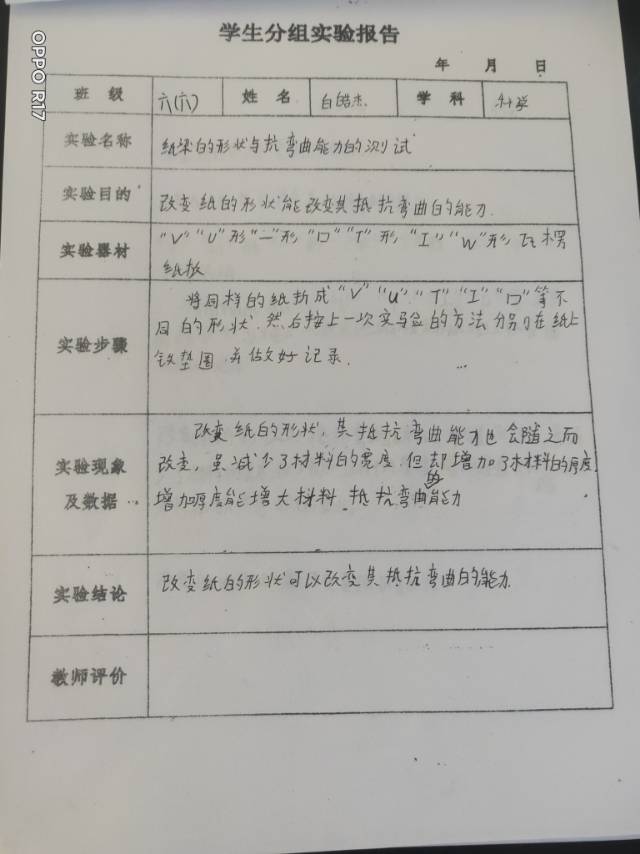 学生分组实验报告
年 月 日
班级 六(六) 姓名 白皓杰 学科 科学
实验名称 纸梁的形状与抗弯曲能力的测试
实验目的 改变纸的形状能改变其抵抗弯曲的能力.
实验器材 "V""U"形"一"形,"口""T"形,"工""W"形,瓦楞
纸板
实验步骤 将同样的纸折成"V""U""T""工""口"等不
同的形状.然后按上一次实验的方法分别在纸上
铁垫圈.并做好记录.
实验现象及数据 改变纸的形状,其抵抗弯曲能力也会随之而
改变,虽减少了材料的宽度.但却增加了木材料的厚度.
增加厚度能增大材料抵抗弯曲的能力
实验结论 改变纸的形状可以改变其抵抗弯曲的能力.
教师评价
OPPO R17